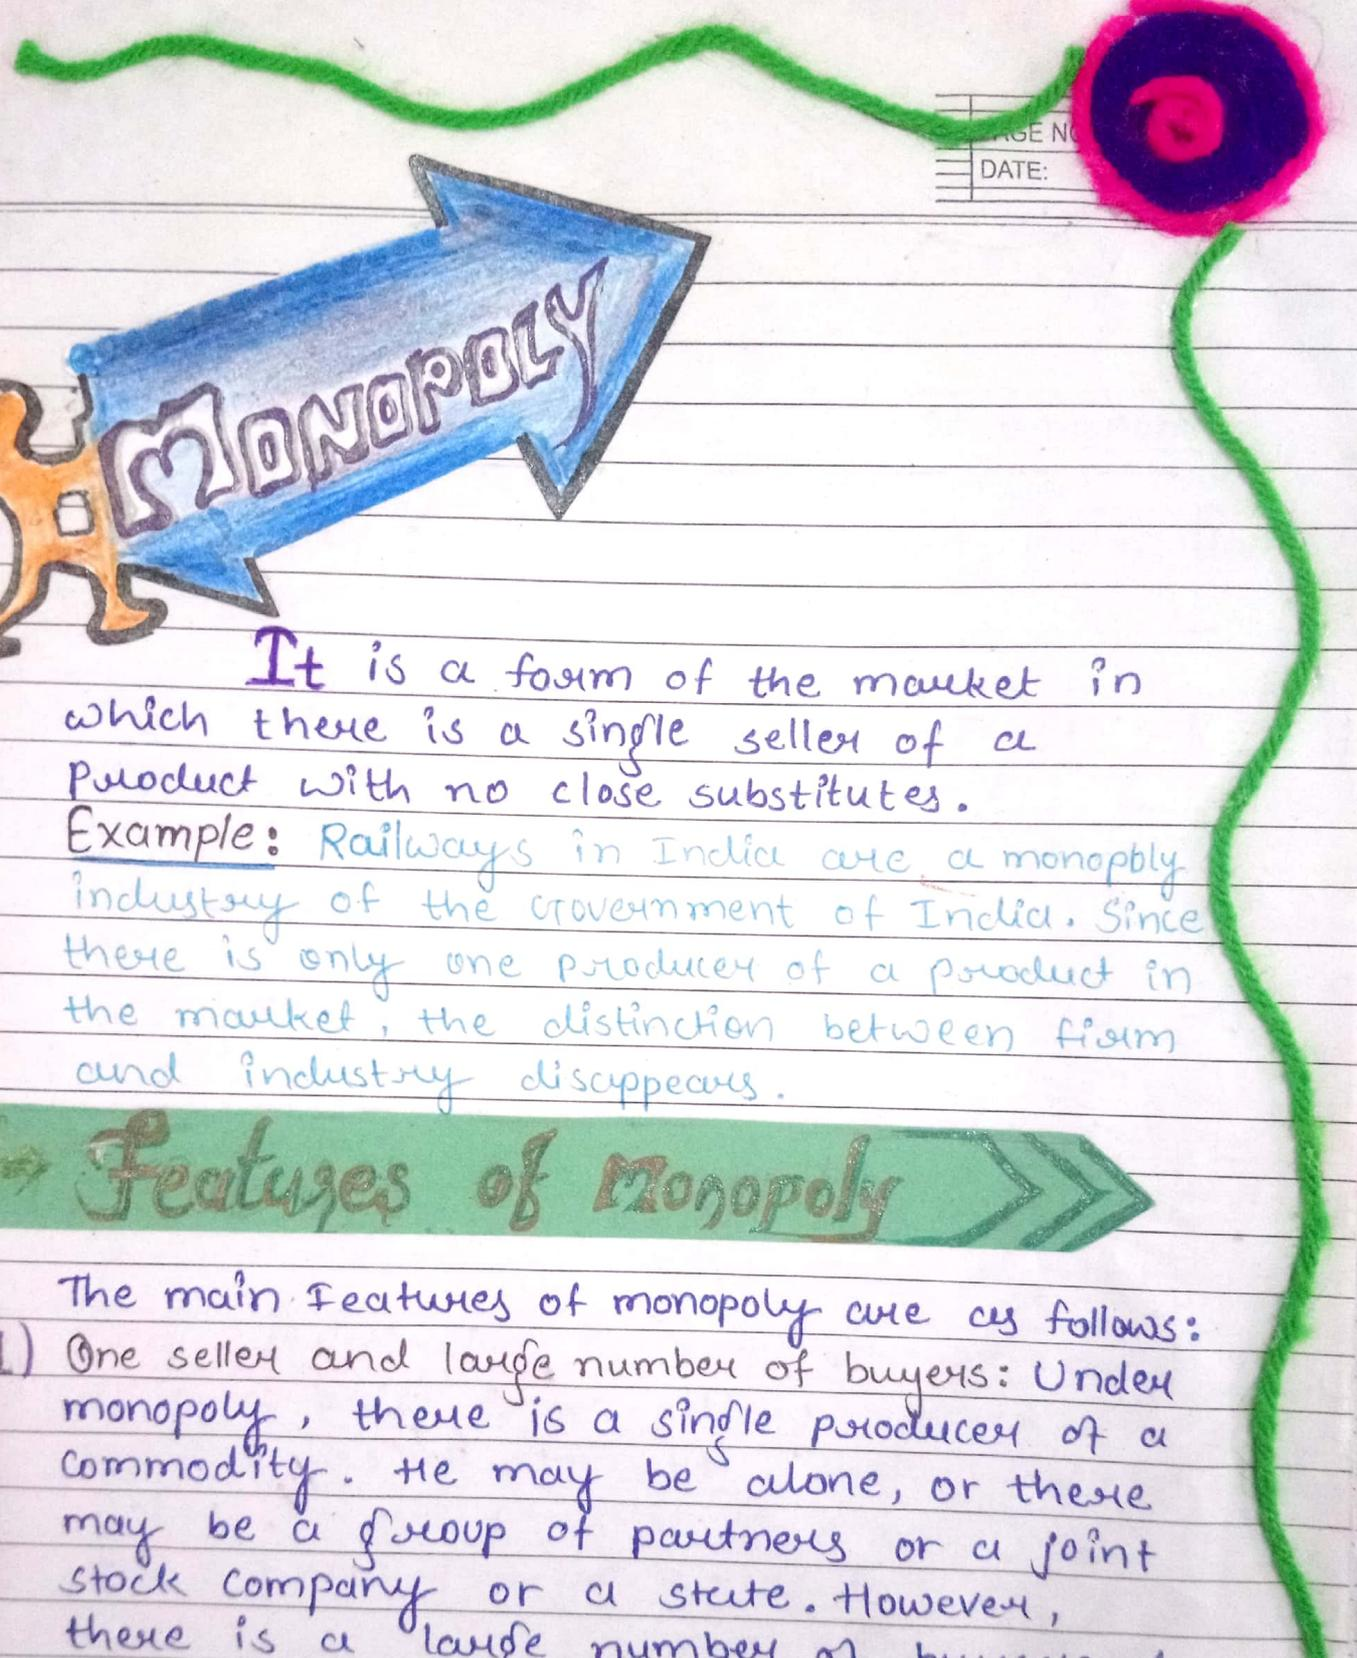 PAGE NO
DATE:
MONOPOLY
It is a form of the market in
which there is a single seller of a
product with no close substitutes.
Example: Railways in India are a monopoly
industry of the Government of India. Since
there is only one producer of a product in
the market, the distinction between firm
and industry disappears.
Features of Monopoly
The main features of monopoly are as follows:
1) One seller and large number of buyers: Under
monopoly, there is a single producer of a
commodity. He may be alone, or there
may be a group of partners or a joint
stock company or a state. However,
there is a large number of